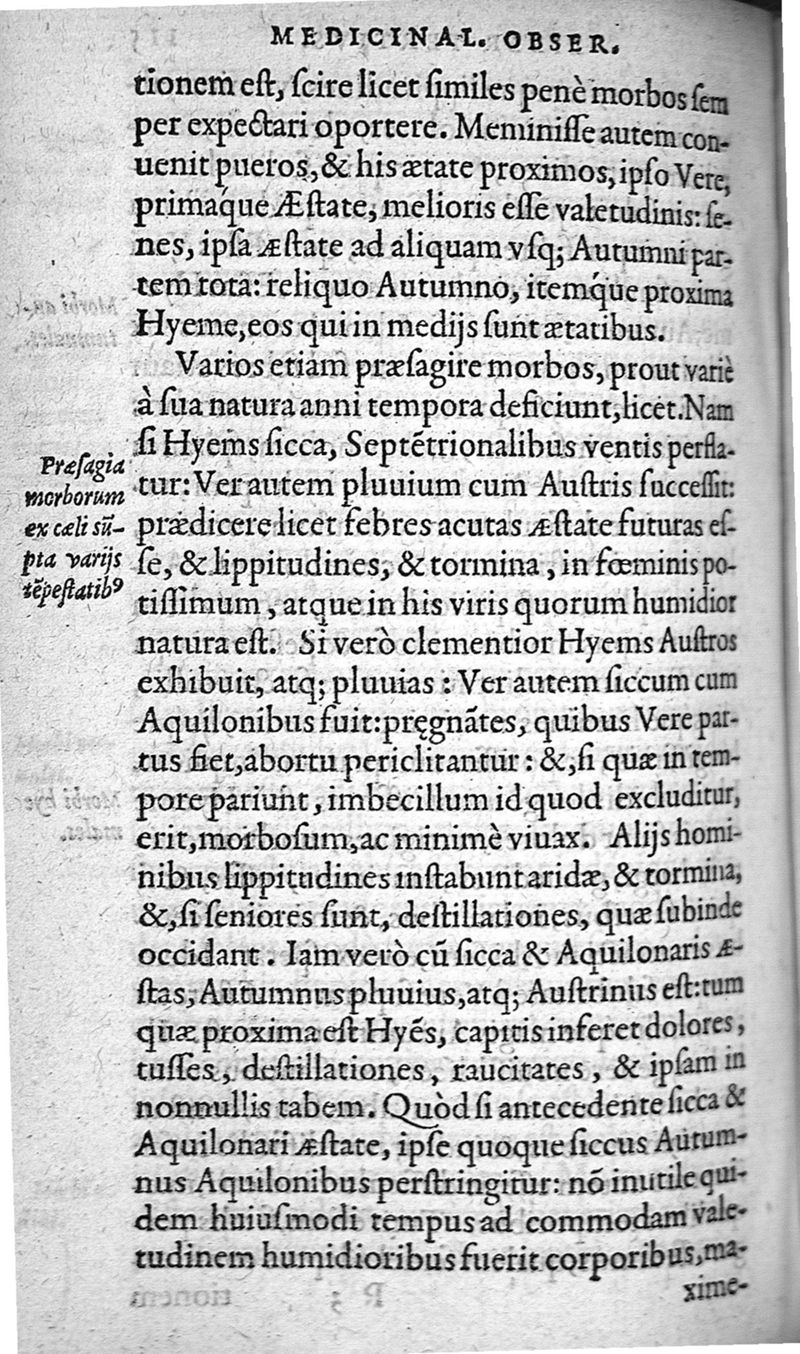 MEDICINAL. OBSER.
tionem eſt, ſcire licet ſimiles penè morbos ſem
per expectari oportere. Meminiſſe autem con-
uenit pueros, & his ætate proximos, ipſo Vere,
primáque Æſtate, melioris eſſe valetudinis: ſe-
nes, ipſa æſtate ad aliquam vſq; Autumni par-
tem tota: reliquo Autumno, itemq́ue proxima
Hyeme, eos qui in medijs ſunt ætatibus.
Varios etiam præſagire morbos, prout variè
à ſua natura anni tempora deficiunt, licet. Nam
ſi Hyems ſicca, Septẽtrionalibus ventis perfla-
tur: Ver autem pluuium cum Auſtris ſucceſſit:
prædicere licet febres acutas æſtate futuras eſ-
ſe, & lippitudines, & tormina, in fœminis po-
tiſſimum, atque in his viris quorum humidior
natura eſt. Si verò clementior Hyems Auſtros
exhibuit, atq; pluuias: Ver autem ſiccum cum
Aquilonibus fuit: pręgnãtes, quibus Vere par-
tus fiet, abortu periclitantur: &, ſi quæ in tem-
pore pariunt, imbecillum id quod excluditur,
erit, morboſum, ac minimè viuax. Alijs homi-
nibus lippitudines inſtabunt aridæ, & tormina,
&, ſi ſeniores ſunt, deſtillationes, quæ ſubinde
occidant. Iam verò cũ ſicca & Aquilonaris Æ-
ſtas, Autumnus pluuius, atq; Auſtrinus eſt: tum
quæ proxima eſt Hyẽs, capitis inferet dolores,
tuſſes, deſtillationes, raucitates, & ipſam in
nonnullis tabem. Quòd ſi antecedente ſicca &
Aquilonari æſtate, ipſe quoque ſiccus Autum-
nus Aquilonibus perſtringitur: nõ inutile qui-
dem huiuſmodi tempus ad commodam vale-
tudinem humidioribus fuerit corporibus, ma-
xime-
Præſagia
morborum
ex cæli sũ-
pta varijs
tẽpeſtatibꝰ